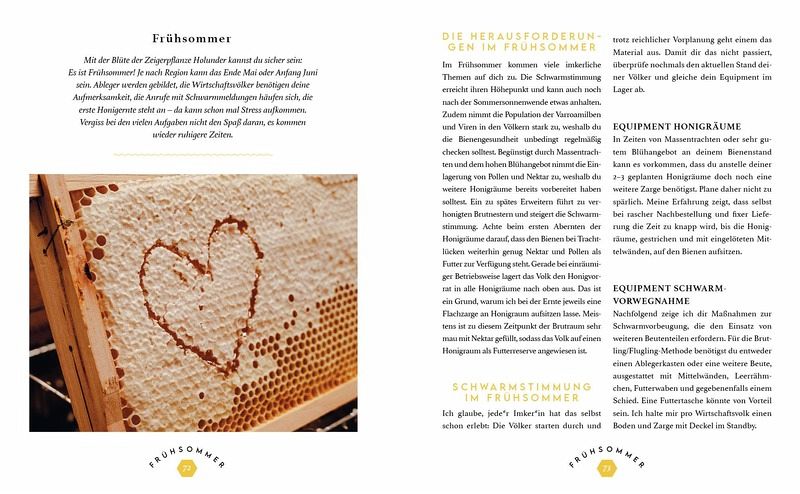 Frühsommer
Mit der Blüte der Zeigerpflanze Holunder kannst du sicher sein:
Es ist Frühsommer! Je nach Region kann das Ende Mai oder Anfang Juni
sein. Ableger werden gebildet, die Wirtschaftsvölker benötigen deine
Aufmerksamkeit, die Anrufe mit Schwarmmeldungen häufen sich, die
erste Honigernte steht an – da kann schon mal Stress aufkommen.
Vergiss bei den vielen Aufgaben nicht den Spaß daran, es kommen
wieder ruhigere Zeiten.
FRÜHSOMMER
72
DIE HERAUSFORDERUN-
GEN IM FRÜHSOMMER
Im Frühsommer kommen viele imkerliche
Themen auf dich zu. Die Schwarmstimmung
erreicht ihren Höhepunkt und kann auch noch
nach der Sommersonnenwende etwas anhalten.
Zudem nimmt die Population der Varroamilben
und Viren in den Völkern stark zu, weshalb du
die Bienengesundheit unbedingt regelmäßig
checken solltest. Begünstigt durch Massentrach-
ten und dem hohen Blühangebot nimmt die Ein-
lagerung von Pollen und Nektar zu, weshalb du
weitere Honigräume bereits vorbereitet haben
solltest. Ein zu spätes Erweitern führt zu ver-
honigten Brutnestern und steigert die Schwarm-
stimmung. Achte beim ersten Abernten der
Honigräume darauf, dass den Bienen bei Tracht-
lücken weiterhin genug Nektar und Pollen als
Futter zur Verfügung steht. Gerade bei einräumi-
ger Betriebsweise lagert das Volk den Honigvor-
rat in alle Honigräume nach oben aus. Das ist
ein Grund, warum ich bei der Ernte jeweils eine
Flachzarge an Honigraum aufsitzen lasse. Meis-
tens ist zu diesem Zeitpunkt der Brutraum sehr
mau mit Nektar gefüllt, sodass das Volk auf einen
Honigraum als Futterreserve angewiesen ist.
SCHWARMSTIMMUNG
IM FRÜHSOMMER
Ich glaube, jede*r Imker*in hat das selbst
schon erlebt: Die Völker starten durch und
trotz reichlicher Vorplanung geht einem das
Material aus. Damit dir das nicht passiert,
überprüfe nochmals den aktuellen Stand dei-
ner Völker und gleiche dein Equipment im
Lager ab.
EQUIPMENT HONIGRÄUME
In Zeiten von Massentrachten oder sehr gu-
tem Blühangebot an deinem Bienenstand
kann es vorkommen, dass du anstelle deiner
2–3 geplanten Honigräume doch noch eine
weitere Zarge benötigst. Plane daher nicht zu
spärlich. Meine Erfahrung zeigt, dass selbst
bei rascher Nachbestellung und fixer Liefe-
rung die Zeit zu knapp wird, bis die Honig-
räume, gestrichen und mit eingelöteten Mit-
telwänden, auf den Bienen aufsitzen.
EQUIPMENT SCHWARM-
VORWEGNAHME
Nachfolgend zeige ich dir Maßnahmen zur
Schwarmvorbeugung, die den Einsatz von
weiteren Beutenteilen erfordern. Für die Brut-
ling/Flugling-Methode benötigst du entweder
einen Ablegerkasten oder eine weitere Beute,
ausgestattet mit Mittelwänden, Leerrähm-
chen, Futterwaben und gegebenenfalls einem
Schied. Eine Futtertasche könnte von Vorteil
sein. Ich halte mir pro Wirtschaftsvolk einen
Boden und Zarge mit Deckel im Standby.
FRÜHSOMMER
73